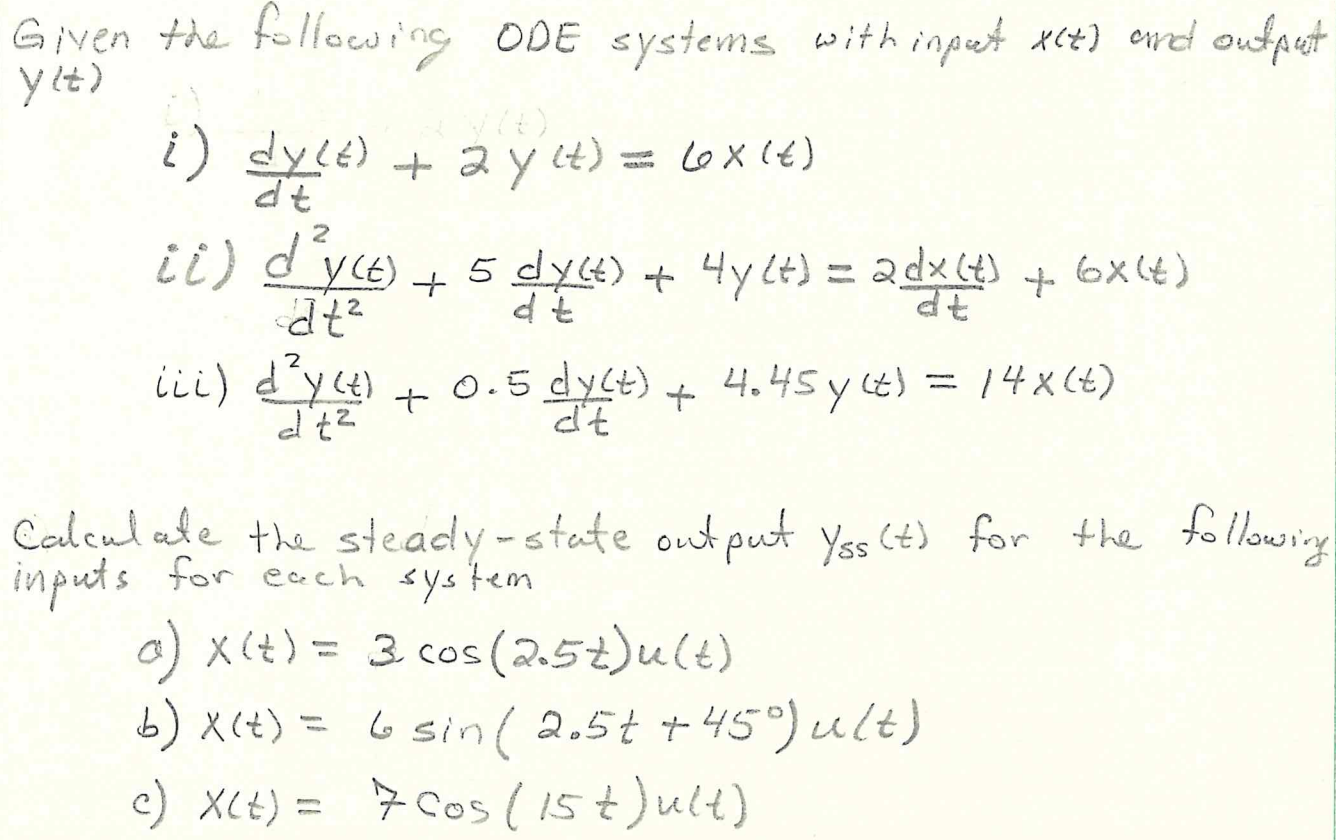 Given the following ODE systems with input x(t) and output
y(t)
i) dy(t)/dt + 2y(t) = 6x(t)
ii) d²y(t)/dt² + 5 dy(t)/dt + 4y(t) = 2dx(t)/dt + 6x(t)
iii) d²y(t)/dt² + 0.5 dy(t)/dt + 4.45y(t) = 14x(t)
Calculate the steady-state output yss(t) for the following
inputs for each system
a) x(t) = 3 cos(2.5t)u(t)
b) x(t) = 6 sin(2.5t + 45°)u(t)
c) x(t) = 7 cos(15t)u(t)